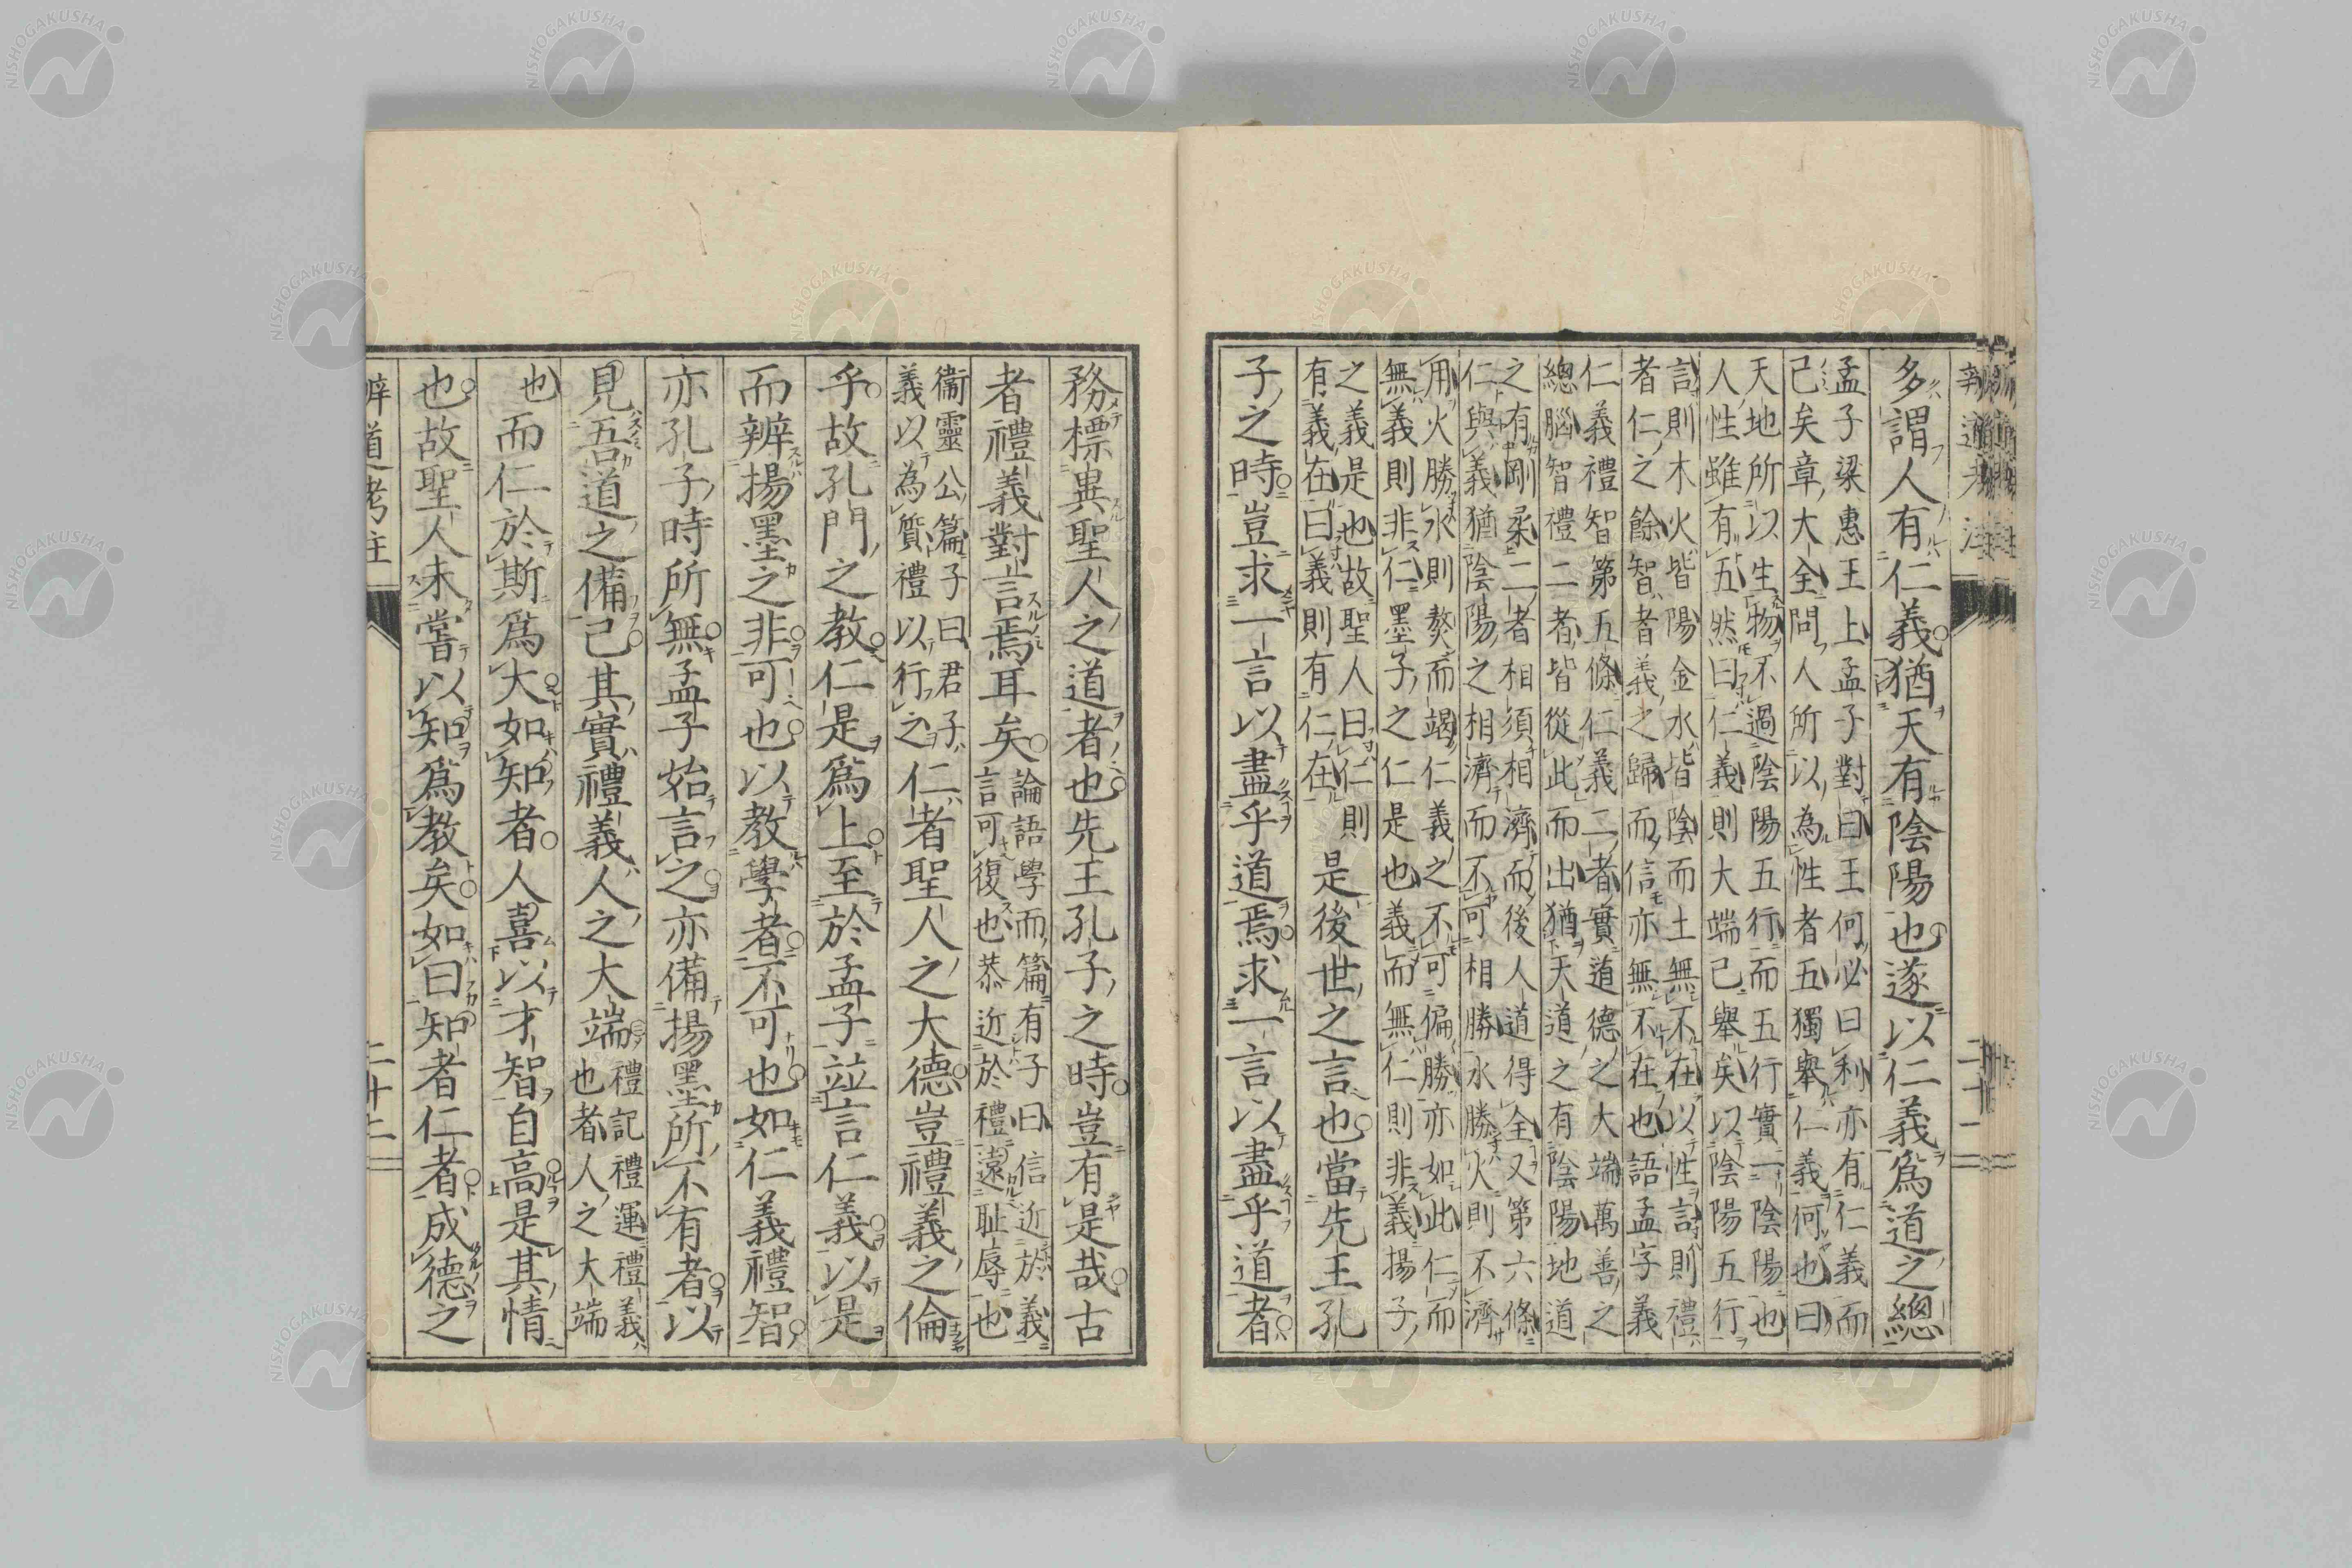 多謂人有仁義猶天有陰陽也遂以仁義爲道之總
孟子梁惠王上孟子對曰王何必曰利亦有仁義而
己矣章大全問人所以為性者五獨舉仁義何也曰
天地所以生物不過陰陽五行而五行實一陰陽也
人性雖有五然曰仁義則大端已舉矣以陰陽五行
言則木火皆陽金水皆陰而土無不在以性言則禮
者仁之餘智者義之歸而信亦無不在也語孟字義
仁義禮智第五條仁義二者實道德之大端萬善之
總腦智禮二者皆從此而出猶天道之有陰陽地道
之有剛柔二者相須相濟而後人道得全又第六條
仁與義猶陰陽之相濟而不可相勝水勝火則不濟
用火勝水則熬而竭仁義之不可偏勝亦如此仁而
無義則非仁墨子之仁是也義而無仁則非義揚子
之義是也故聖人曰仁則
有義在曰義則有仁在
是後世之言也當先王孔
子之時豈求一言以盡乎道焉求一言以盡乎道者
務標異聖人之道者也先王孔子之時豈有是哉古
者禮義對言焉耳矣
論語學而篇有子曰信近於義
言可復也恭近於禮遠耻辱也
衞靈公篇子曰君子
義以為質禮以行之
仁者聖人之大德豈禮義之倫
乎故孔門之教仁是爲上至於孟子竝言仁義以是
而辨揚墨之非可也以教學者不可也如仁義禮智
亦孔子時所無孟子始言之亦備揚墨所不有者以
見吾道之備已其實禮義人之大端
禮記禮運禮義
也者人之大端
也而仁於斯爲大如知者人喜以才智自高是其情
也故聖人未嘗以知爲教矣如曰知者仁者成德之
辨道考注
二十二
NISHOGAKUSHA